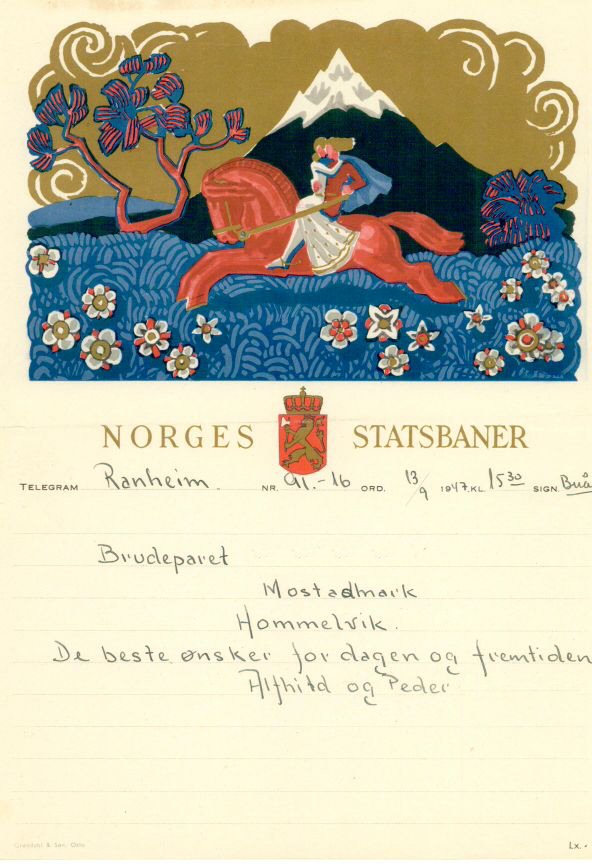 NORGES STATSBANER
TELEGRAM Ranheim. NR. 91.-16 ORD. 13/9 1947. KL. 15 30 SIGN. Buå
Brudeparet
Mostadmark
Hommelvik.
De beste ønsker for dagen og fremtiden
Alfhild og Peder
Grøndahl & Søn, Oslo
Lx.-